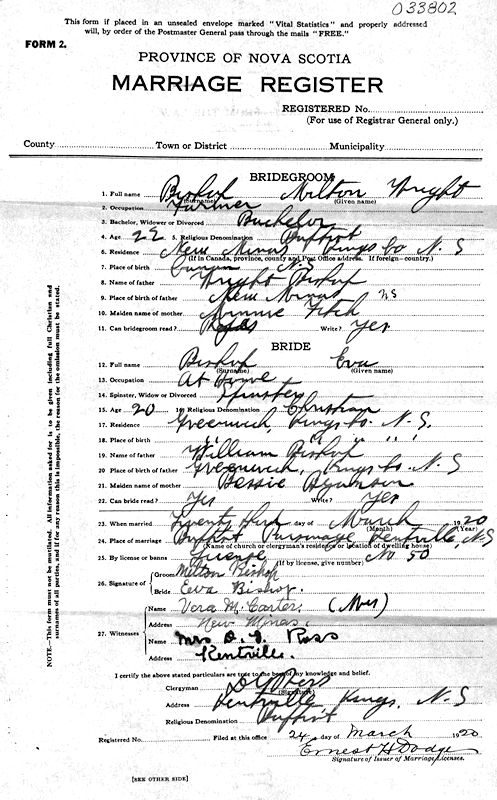 033802
This form if placed in an unsealed envelope marked "Vital Statistics" and properly addressed
will, by order of the Postmaster General pass through the mails "FREE."
FORM 2.
PROVINCE OF NOVA SCOTIA
MARRIAGE REGISTER
REGISTERED No.
(For use of Registrar General only.)
County Town or District Municipality
BRIDEGROOM
1. Full name Bishop Milton Wright
(Surname) (Given name)
2. Occupation Farmer
3. Bachelor, Widower or Divorced Bachelor
4. Age 22 5. Religious Denomination Baptist
6. Residence New Minas Kings Co N. S
(If in Canada, province, county and Post Office address. If foreign—country.)
7. Place of birth N. S
8. Name of father Wright Bishop
9. Place of birth of father New Minas NS
10. Maiden name of mother Minnie Fitch
11. Can bridegroom read? Write? Yes
BRIDE
12. Full name Bishop Eva
(Surname) (Given name)
13. Occupation At Home
14. Spinster, Widow or Divorced Spinster
15. Age 20 16. Religious Denomination Christian
17. Residence Greenwich, Kings Co. N. S.
18. Place of birth " " " "
19. Name of father William Bishop
20. Place of birth of father Greenwich, Kings Co. N. S
21. Maiden name of mother Bessie
22. Can bride read? Yes Write? Yes
23. When married Twenty third day of March 1920
(Month) (Year)
24. Place of marriage Baptist Parsonage Kentville, N.S
(Name of church or clergyman's residence or location of dwelling house)
25. By license or banns License No. 50
(If by license, give number)
26. Signature of Groom Milton Bishop
Bride Eva Bishop.
27. Witnesses Name Vera M. Carter. (Mrs)
Address New Minas.
Name Mrs D. J. Ross
Address Kentville.
I certify the above stated particulars are true to the best of my knowledge and belief.
Clergyman
(Signature)
Address Kentville, Kings, N. S
Religious Denomination Baptist
Registered No. Filed at this office 24 day of March 1920
Ernest H Dodge
Signature of Issuer of Marriage Licenses.
[SEE OTHER SIDE]
NOTE.—This form must not be mutilated. All information asked for is to be given including full Christian and
surnames of all parties, and if for any reason this is impossible, the reason for the omission must be stated.